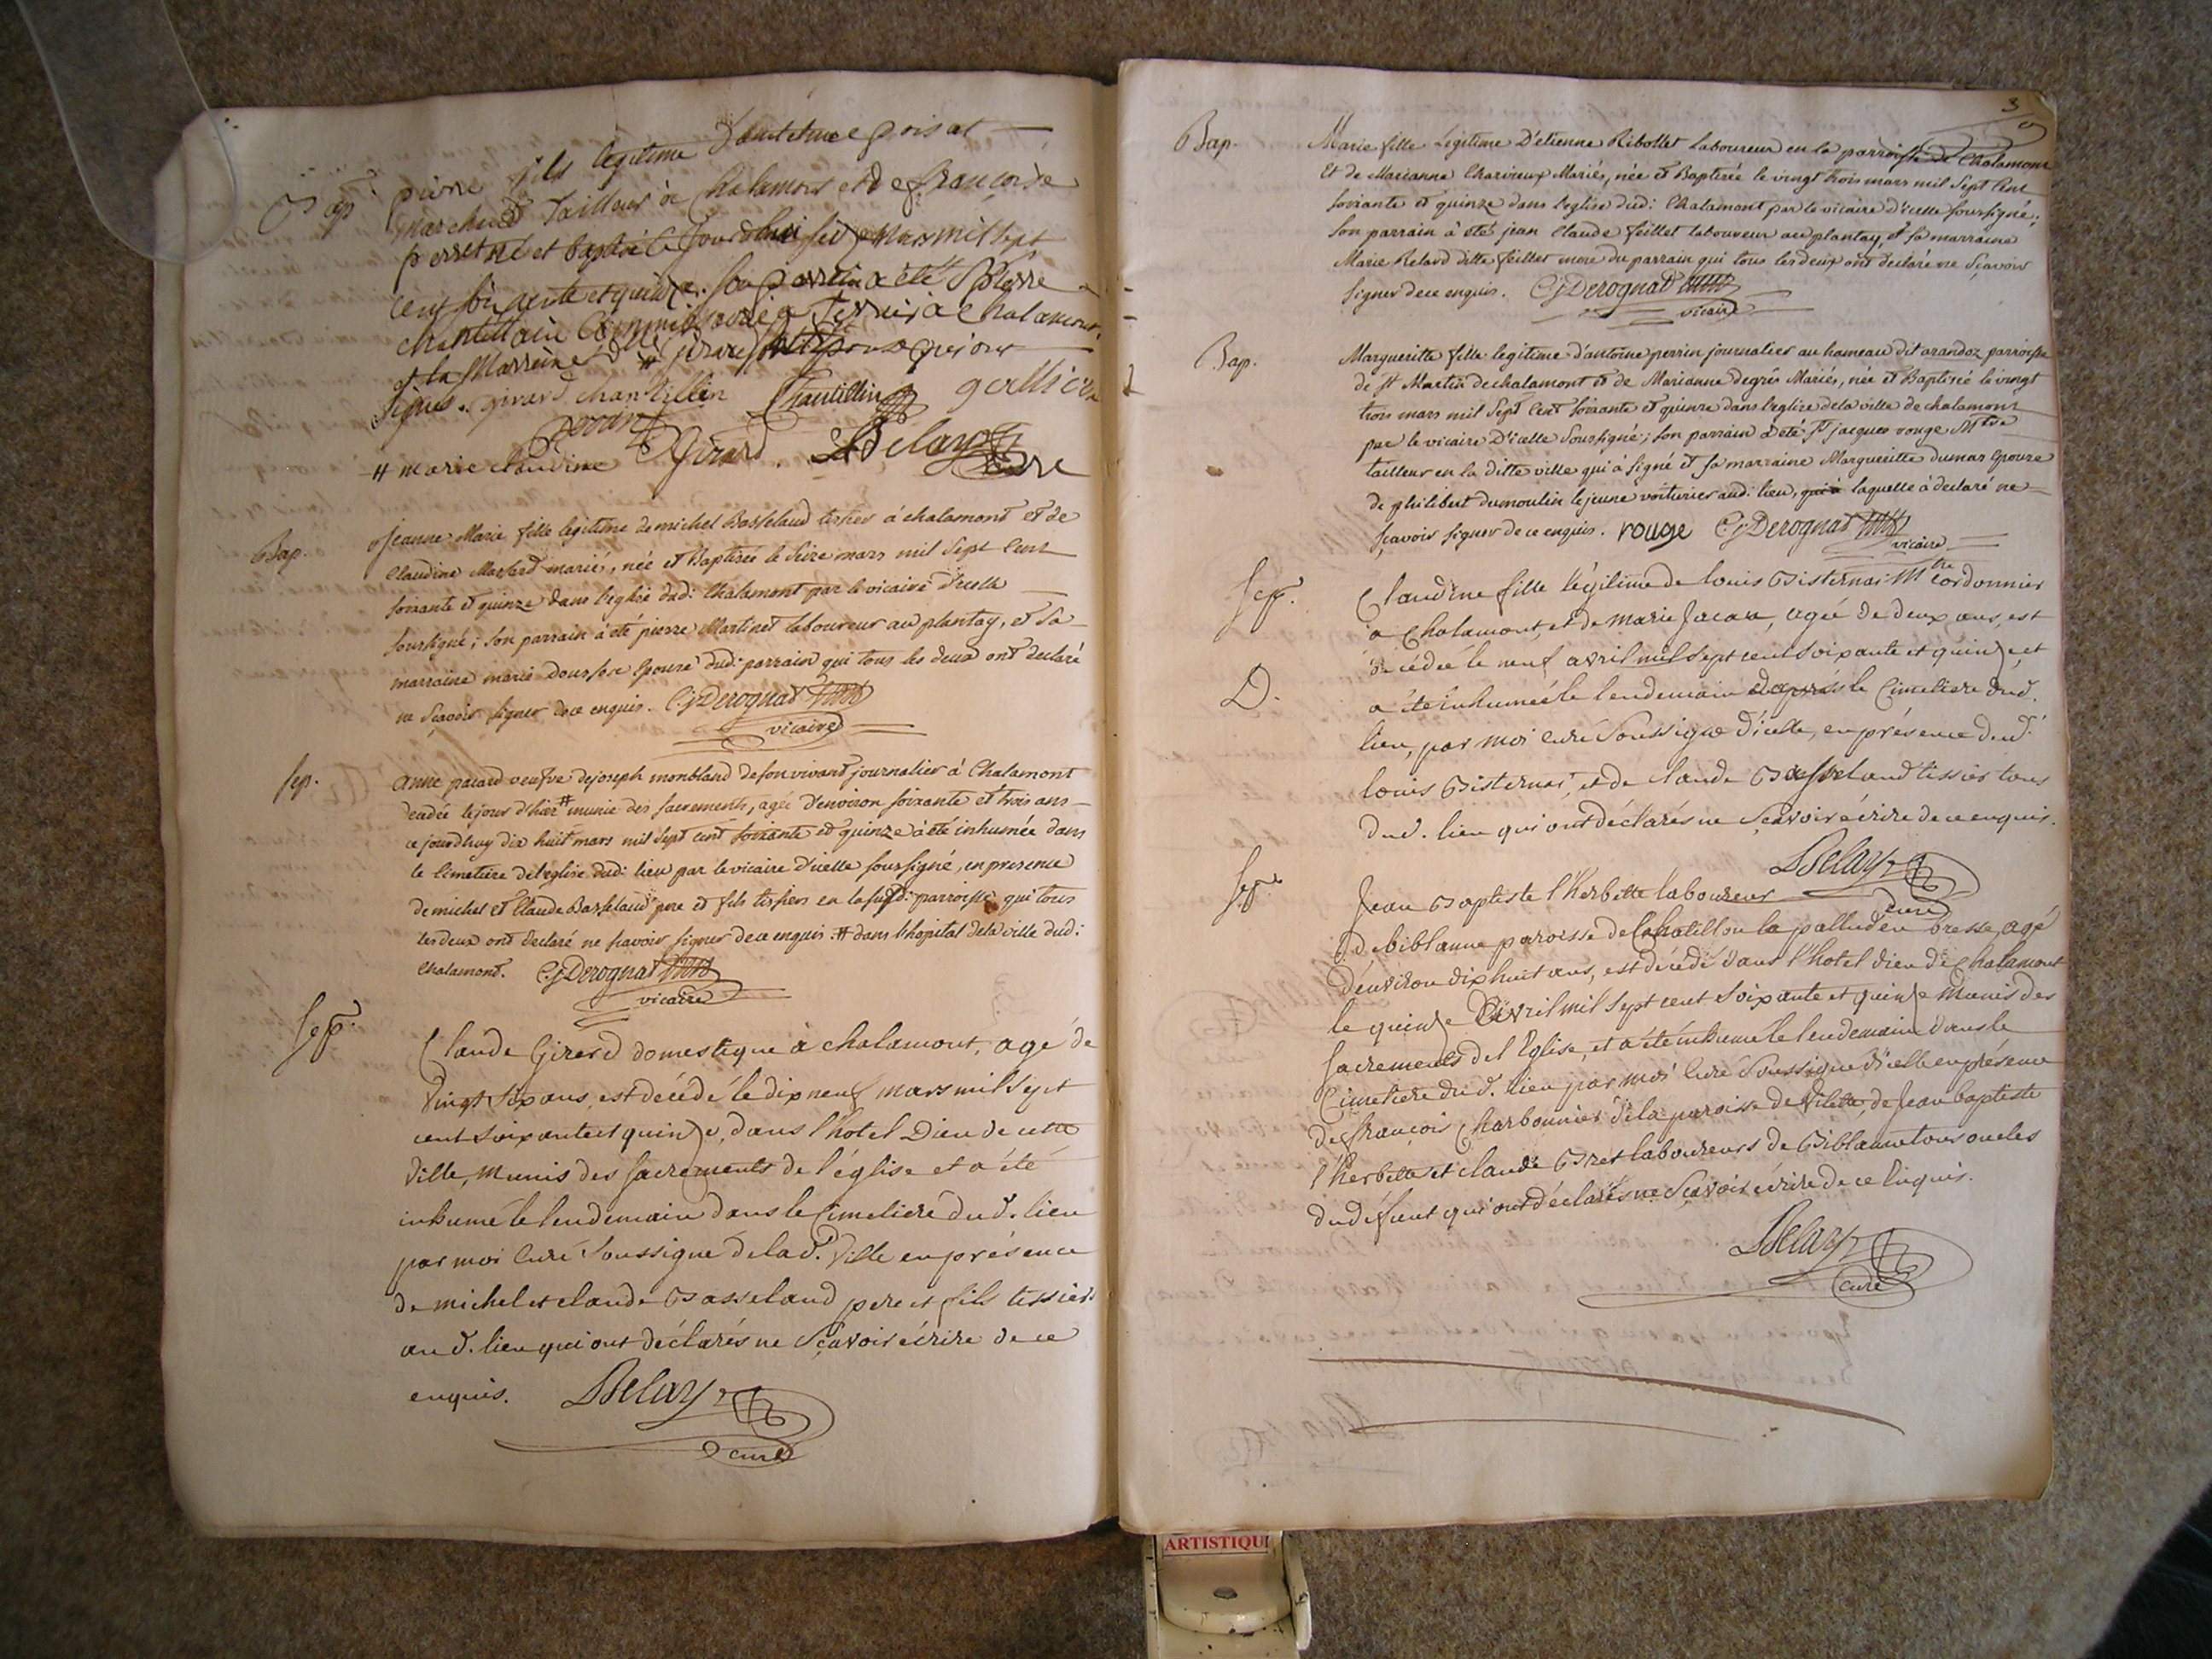 Bap.
pierre fils legitime
marchand Tailleur à Chalamont et de françoise
perret né et baptisé le jourdhui seize Mars mil sept
cent soixante et quinze. son parrein a été Pierre
chantillin Commissaire a Terrier a Chalamont,
et la Marreine #
signés. girard chantillin Chantillin gallien
Girard. Delay curé
# marie claudine
Bap.
Jeanne Marie fille legitime de michel Basseland tissier à chalamont et de
Claudine mariés, née et Baptisée le seize mars mil sept Cent
soixante et quinze dans l'eglise dud: Chalamont par le vicaire d'icelle
soussigné; son parrain à été pierre Martinet laboureur au plantay, et sa
marraine marie épouse dud: parrain qui tous les deux ont declaré
ne sçavoir signer de ce enquis. C.J Derognat
vicaire
sep.
anne pacard veufve de joseph montbland de son vivant journalier à Chalamont
decedée le jour d'hier # munie des sacrements, agée d'environ soixante et trois ans
ce jourdhuy dix huit mars mil sept cent soixante et quinze à été inhumée dans
le Cimetiere de l'eglise dud: lieu par le vicaire d'icelle soussigné, en presence
de michel et Claude Basseland pere et fils tissiers en la susd: parroisse qui tous
les deux ont declaré ne sçavoir signer de ce enquis. # dans l'hopital de la ville dud:
Chalamont. C.J Derognat
vicaire
Sep.
Claude Girerd domestique à chalamont, agé de
vingt six ans, est décédé le dix neuf mars mil sept
cent soixante et quinze, dans l'hotel Dieu de cette
ville, munis des sacrements de l'église et a été
inhumé le lendemain dans le Cimetiere dud. lieu
par moi Curé soussigné de lad. Ville en présence
de michel et claude Basseland pere et fils tissiers
aud. lieu qui ont déclarés ne sçavoir écrire de ce
enquis. Delay
curé
3
Bap.
Marie fille Legitime D'etienne Ribollet Laboureur en la parroisse de Chalamont
Et de Marianne Charvieux Mariés, née et Baptisée le vingt trois mars mil sept Cent
soixante et quinze dans l'eglise dud: Chalamont par le vicaire d'icelle soussigné;
son parrain à été jean Claude feillet laboureur au plantay, et sa marraine
Marie Relavd ditte feillet mere du parrain qui tous les deux ont declaré ne sçavoir
signer de ce enquis. C.J Derognat
vicaire
Bap.
Margueritte fille legitime d'antoine perrin journalier au hameau dit arandoz parroisse
de st Martin de chalamont et de Marianne degrés Mariés, née et Baptisée le vingt
trois mars mil sept Cent soixante et quinze dans l'eglise de la ville de chalamont
par le vicaire d'icelle soussigné; son parrain à été sr jacques rouge Mtre
tailleur en la ditte ville qui à signé et sa marraine Margueritte dumas épouse
de philibert dumoulin le jeune voiturier aud: lieu, qui à laquelle à declaré ne
sçavoir signer de ce enquis. rouge C.J Derognat
vicaire
Sep.
Claudine fille légitime de louis Bisternas Mtre Cordonnier
a Chalamont, et de marie Jacan, agée de deux ans, est
décédée le neuf avril mil sept cent soixante et quinze, et
D.
a été inhumée le lendemain le Cimetiere dud.
lieu, par moi Curé soussigné d'icelle, en présence dud.
louis Bisternas, et de claude Basseland tissier tous
dud. lieu qui ont déclarés ne sçavoir écrire de ce enquis.
Delay
curé
Sep.
Jean Baptiste l'Herbette laboureur
de biblanne paroisse de Chatillon la pallud en bresse, agé
d'environ dix huit ans, est décédé dans l'hotel dieu de Chalamont
le quinze avril mil sept cent soixante et quinze munis des
sacrements de l'Eglise, et a été inhumé le lendemain dans le
Cimetiere dud. lieu par moi Curé soussigné d'icelle en présence
de françois Charbonnier de la paroisse de Vilette, de Jean baptiste
l'herbette et claude Bret laboureurs de Biblanne tous oncles
du défunt qui ont déclarés ne sçavoir écrire de ce Enquis.
Delay
curé
ARTISTIQU